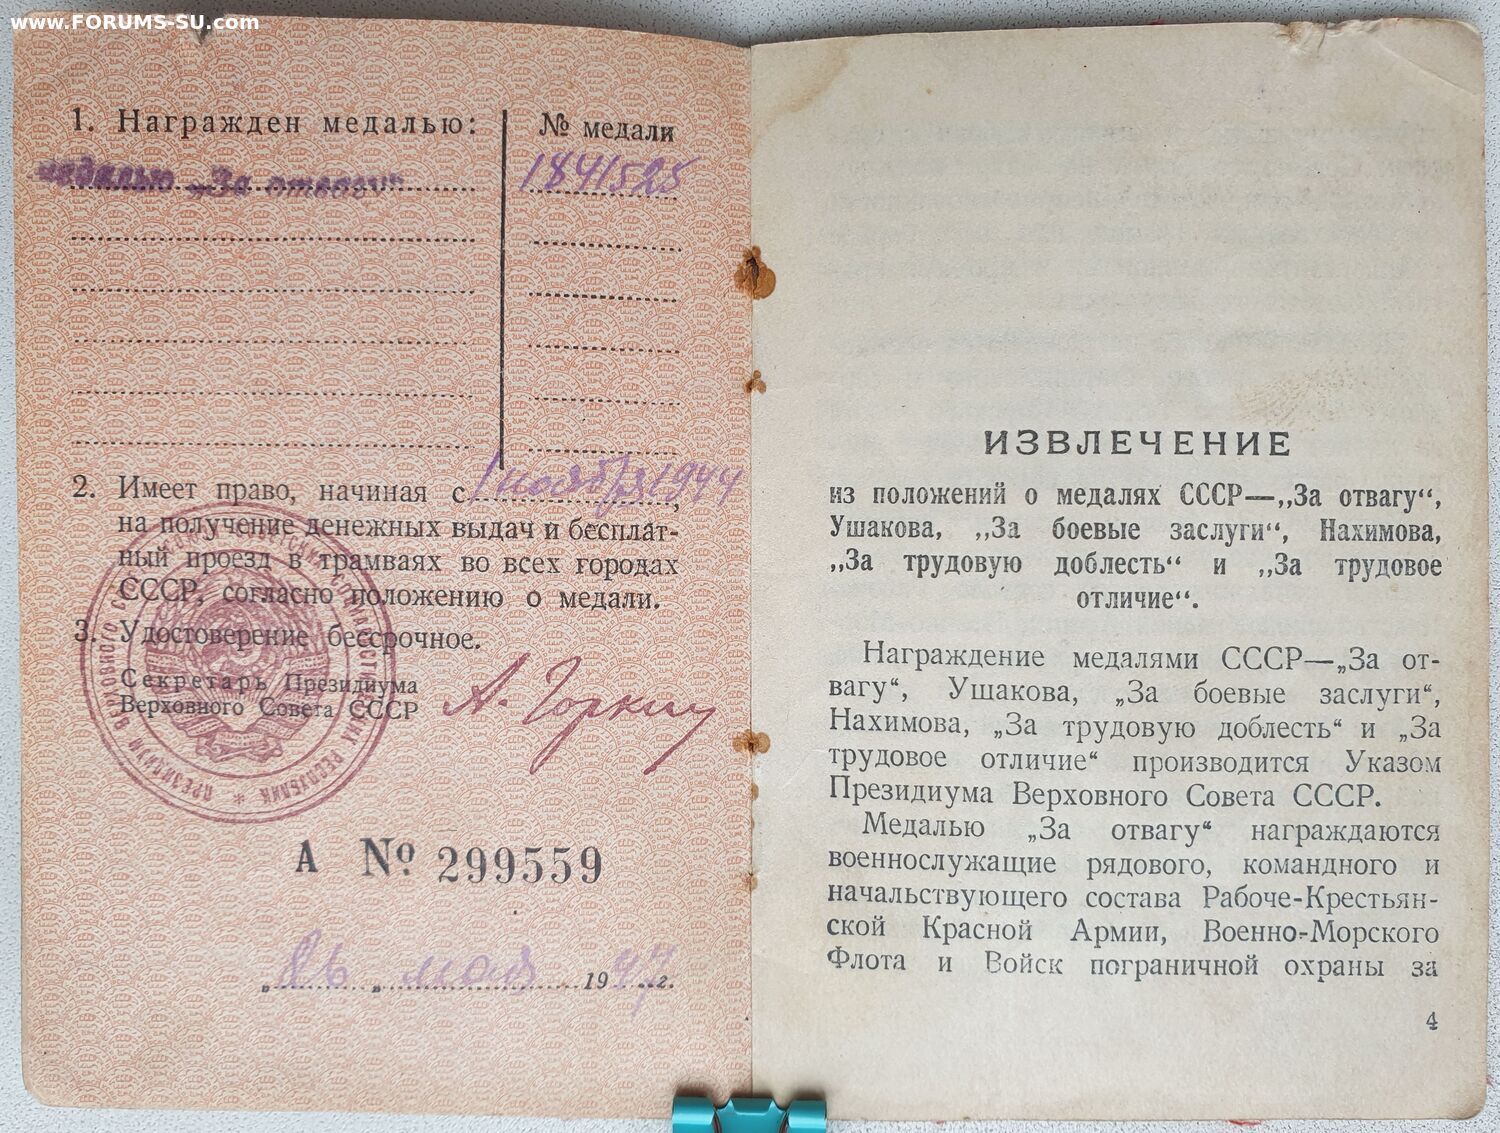 www.FORUMS-SU.com
1. Награжден медалью:
№ медали
медалью „За отвагу“
1841525
2. Имеет право, начиная с 1 ноября 1944,
на получение денежных выдач и бесплат-
ный проезд в трамваях во всех городах
СССР, согласно положению о медали.
3. Удостоверение бессрочное.
Секретарь Президиума
Верховного Совета СССР
А. Горкин
А № 299559
„26 „ мая 1947 г.
ИЗВЛЕЧЕНИЕ
из положений о медалях СССР—„За отвагу“,
Ушакова, „За боевые заслуги“, Нахимова,
„За трудовую доблесть“ и „За трудовое
отличие“.
Награждение медалями СССР—„За от-
вагу“, Ушакова, „За боевые заслуги“,
Нахимова, „За трудовую доблесть“ и „За
трудовое отличие“ производится Указом
Президиума Верховного Совета СССР.
Медалью „За отвагу“ награждаются
военнослужащие рядового, командного и
начальствующего состава Рабоче-Крестьян-
ской Красной Армии, Военно-Морского
Флота и Войск пограничной охраны за
4